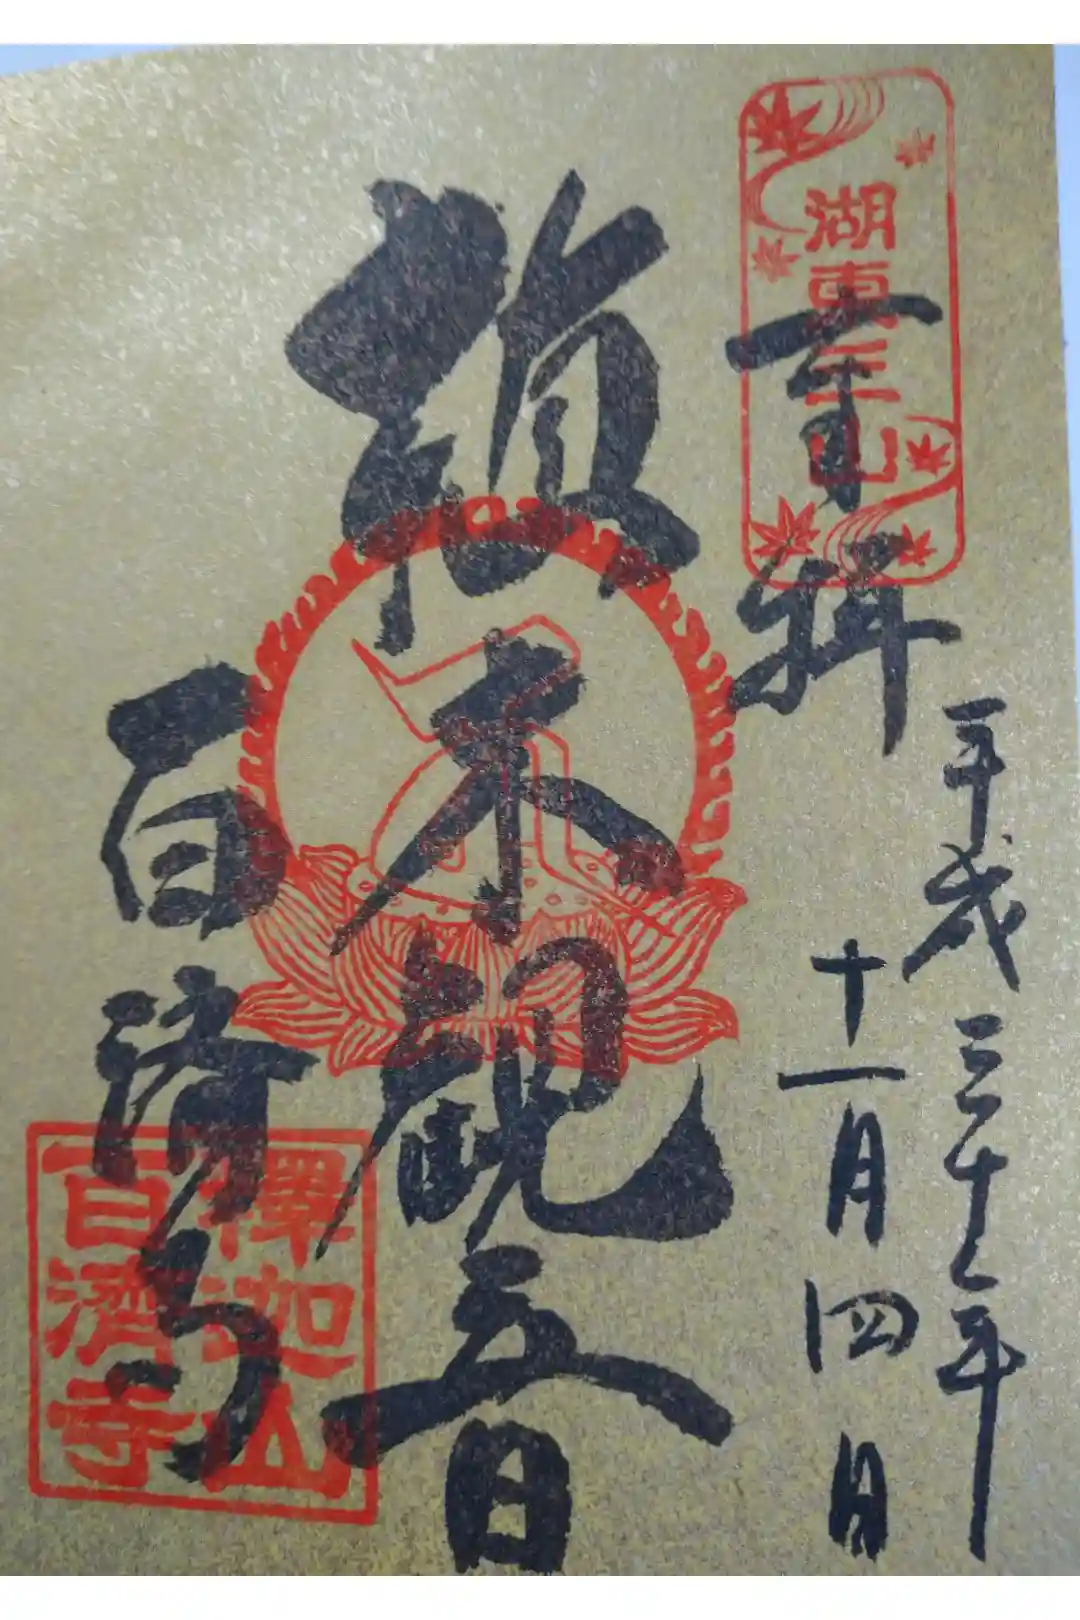 湖東三山
奉拝
平成三十年
十一月四日
植木観音
百済寺
釋迦山
百濟寺